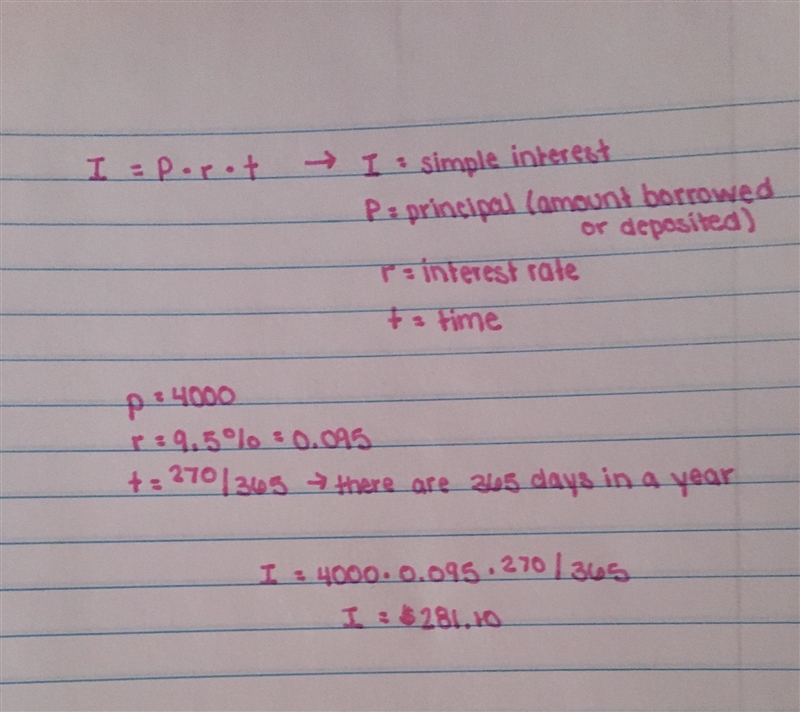 I = P · r · t → I = simple interest
P = principal (amount borrowed
or deposited)
r = interest rate
t = time
p = 4000
r = 9.5% = 0.095
t = 270/365 → there are 365 days in a year
I = 4000 · 0.095 · 270/365
I = $281.10